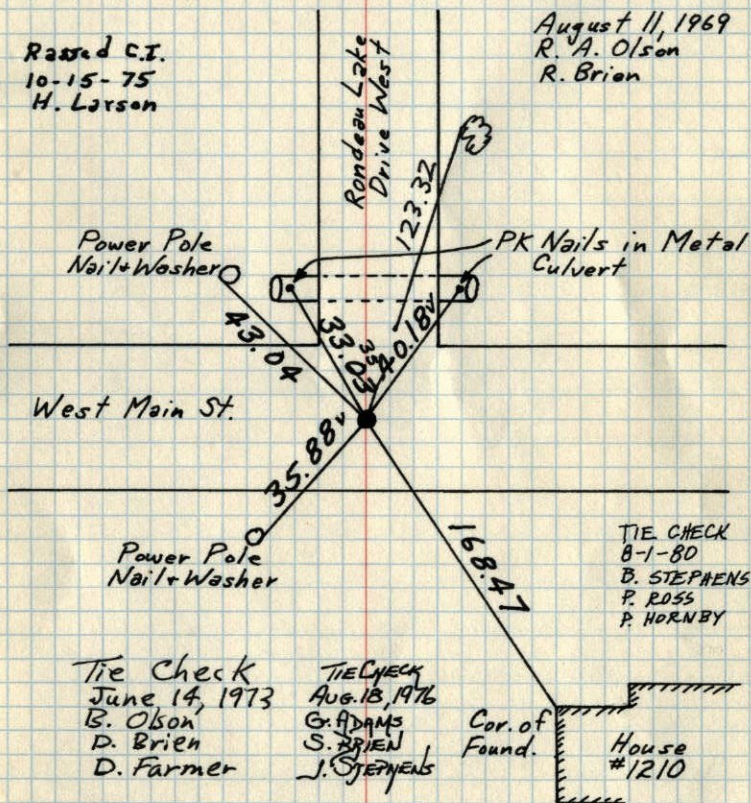 August 11, 1969
R. A. Olson
R. Brien
Rassed C.I.
10-15-75
H. Larson
Rondeau Lake
Drive West
123.32
Power Pole
Nail+Washer
PK Nails in Metal
Culvert
43.04
33.03
33
40.18v
West Main St.
35.88v
168.47
Power Pole
Nail+Washer
TIE CHECK
8-1-80
B. STEPHENS
P. ROSS
P. HORNBY
Tie Check
June 14, 1973
B. Olson
D. Brien
D. Farmer
TIE CHECK
AUG. 18, 1976
G. ADAMS
S. BRIEN
J. STEPHENS
Cor. of
Found.
House
#1210